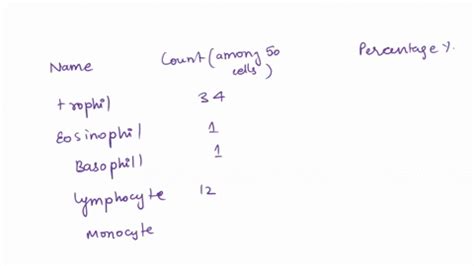 Name Count (among 50 cells) Percentage %
trophil 34
Eosinophil 1
Basophill 1
lymphocyte 12
Monocyte